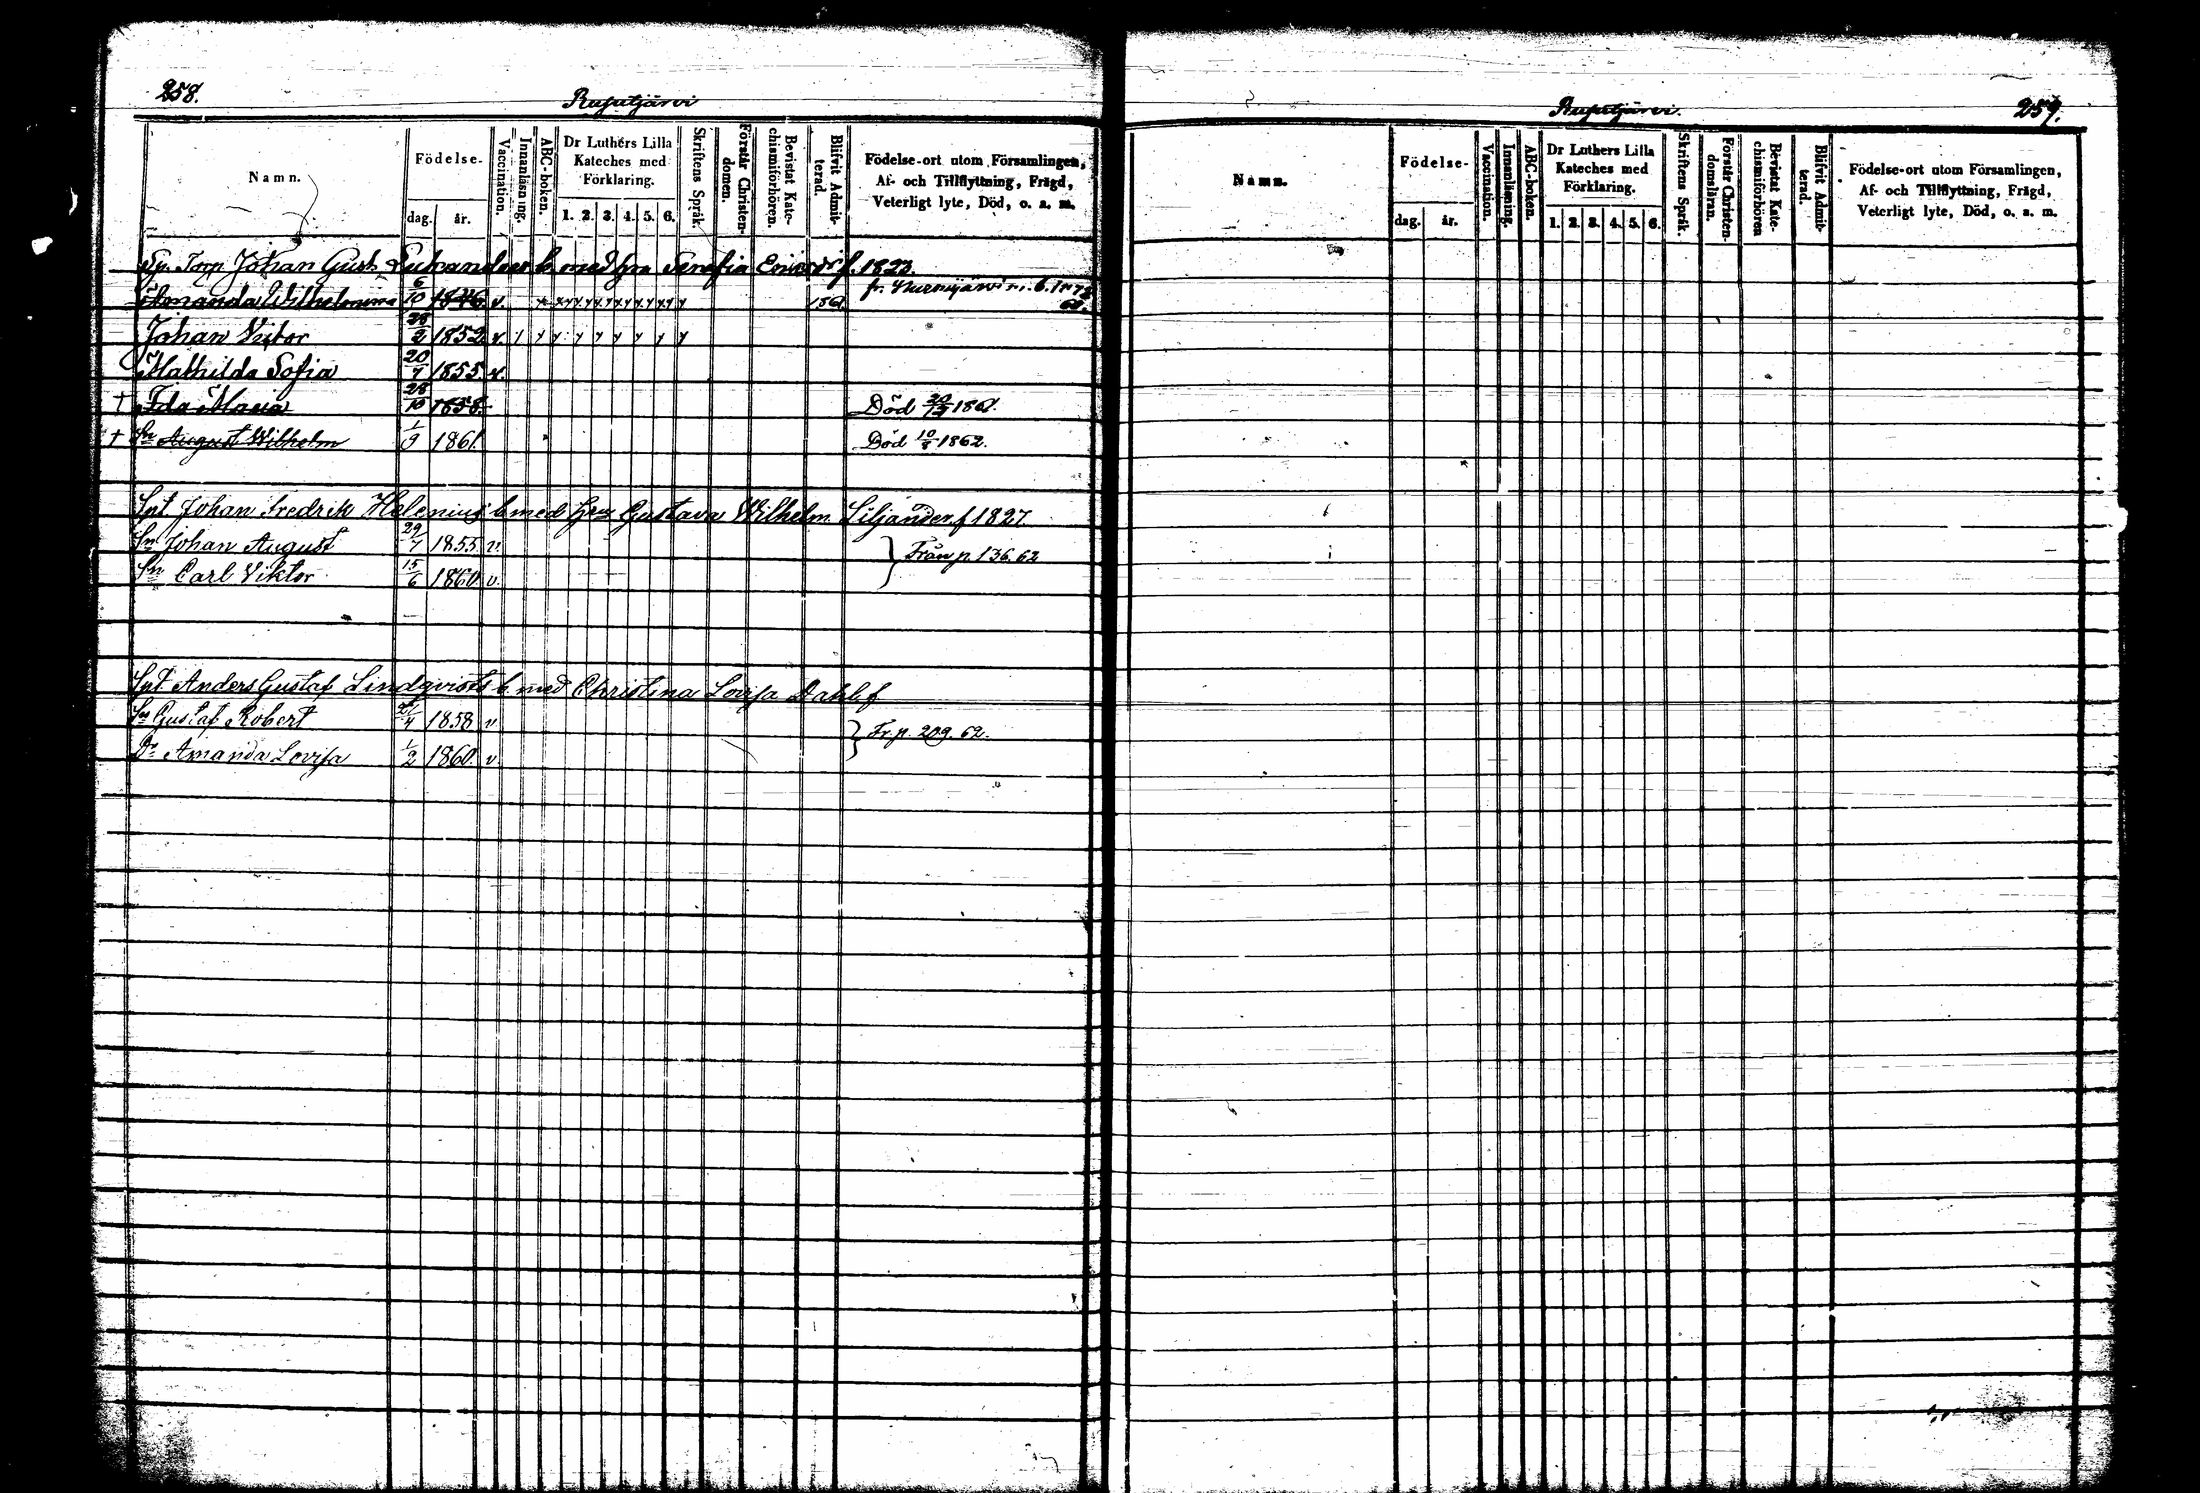 258.
Rusutjärvi
Namn.
Födelse-
dag. år.
Vaccination.
Innanläsning.
ABC-boken.
Dr Luthers Lilla
Kateches med
Förklaring.
1. 2. 3. 4. 5. 6.
Skriftens Språk.
Förstår Christen-
domen.
Bevistat Kate-
chismiförhören.
Blifvit Admit-
terad.
Födelse-ort utom Församlingen,
Af- och Tillflyttning, Frägd,
Veterligt lyte, Död, o. a. m.
Johan Gust. b. med hru Serafia f. 1823.
Amanda Wilhelmina 6/10 1846. v. 1861
Johan Victor 28/2 1852. v.
Mathilda Sofia 20/7 1855. v.
† Ida Maria 28/10 1858. Död 20/12 1861.
† Sn August Wilhelm 1/9 1861. Död 10/8 1862.
Spt Johan Fredrik Helenius b. med Hru Gustava Wilhelm. Siljander f 1827.
Sn Johan August 29/7 1855 v. } Från p. 136. 62
Sn Carl Viktor 15/6 1860. v.
Spt. Anders Gustaf Lindqvists b. med Christina Lovisa Dahl f
Sn Gustaf Robert /4 1858 v } Fr. p. 209. 62.
Dr Amanda Lovisa 1/2 1860. v.
Rusutjärvi.
259.
Namn.
Födelse-
dag. år.
Vaccination.
Innanläsning.
ABC-boken.
Dr Luthers Lilla
Kateches med
Förklaring.
1. 2. 3. 4. 5. 6.
Skriftens Språk.
Förstår Christen-
domsläran.
Bevistat Kate-
chismiförhören
Blifvit Admit-
terad.
Födelse-ort utom Församlingen,
Af- och Tillflyttning, Frägd,
Veterligt lyte, Död, o. a. m.